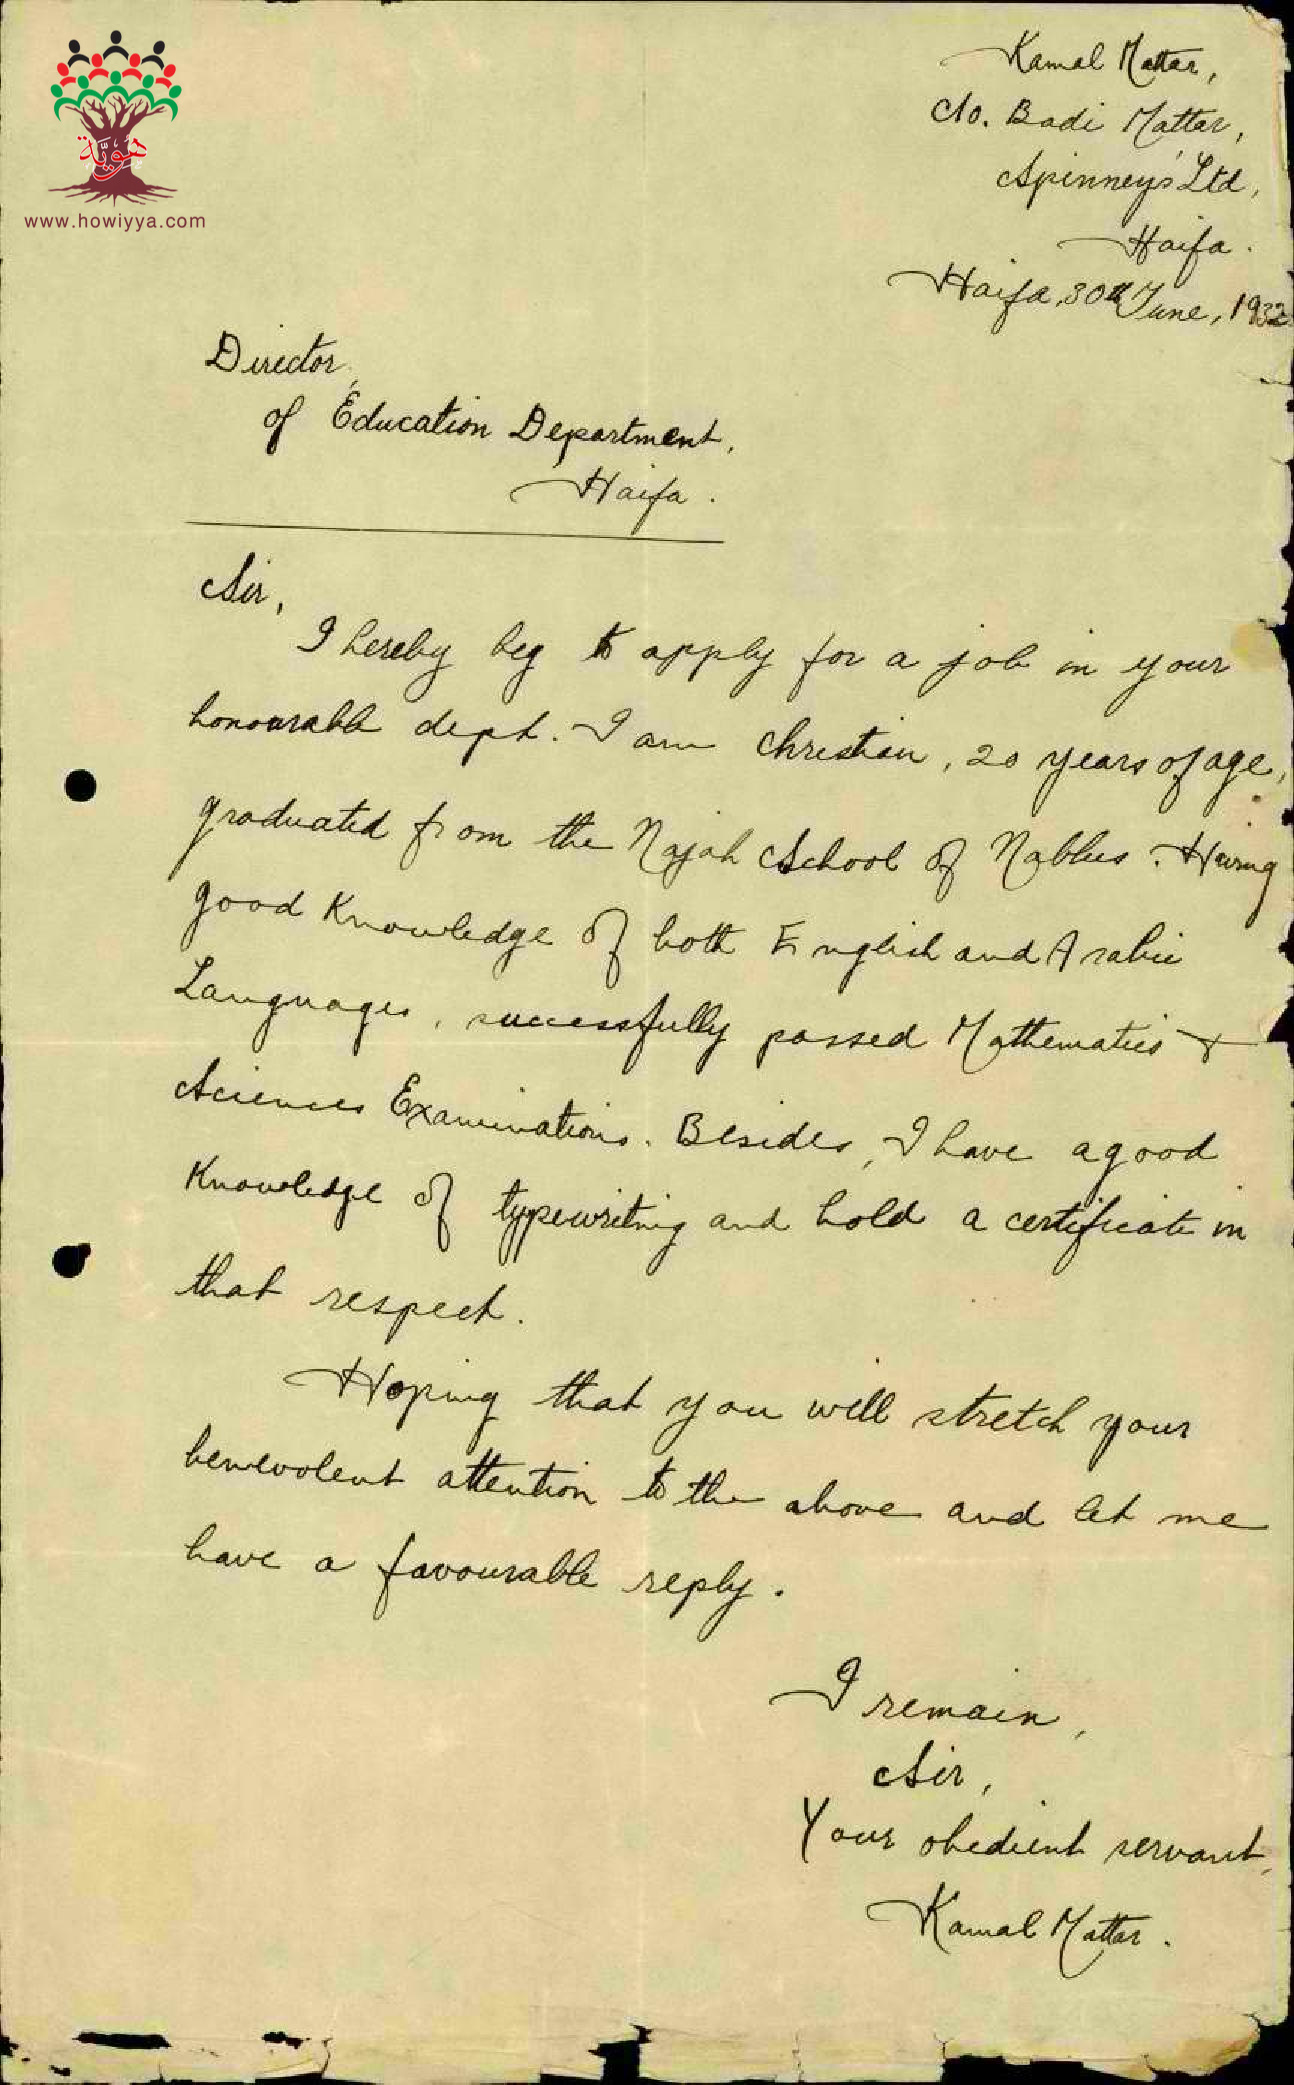 هويّة
www.howiyya.com
Kamal Mattar,
c/o. Badi Mattar,
Spinney's Ltd,
Haifa.
Haifa, 30th June, 1932
Director,
of Education Department,
Haifa.
Sir,
I hereby beg to apply for a job in your
honourable dept. I am christian, 20 years of age,
graduated from the Najah School of Nablus. Having
good Knowledge of both English and Arabic
Languages, successfully passed Mathematics &
Sciences Examinations. Besides, I have a good
Knowledge of typewriting and hold a certificate in
that respect.
Hoping that you will stretch your
benevolent attention to the above and let me
have a favourable reply.
I remain,
Sir,
Your obedient servant,
Kamal Mattar.